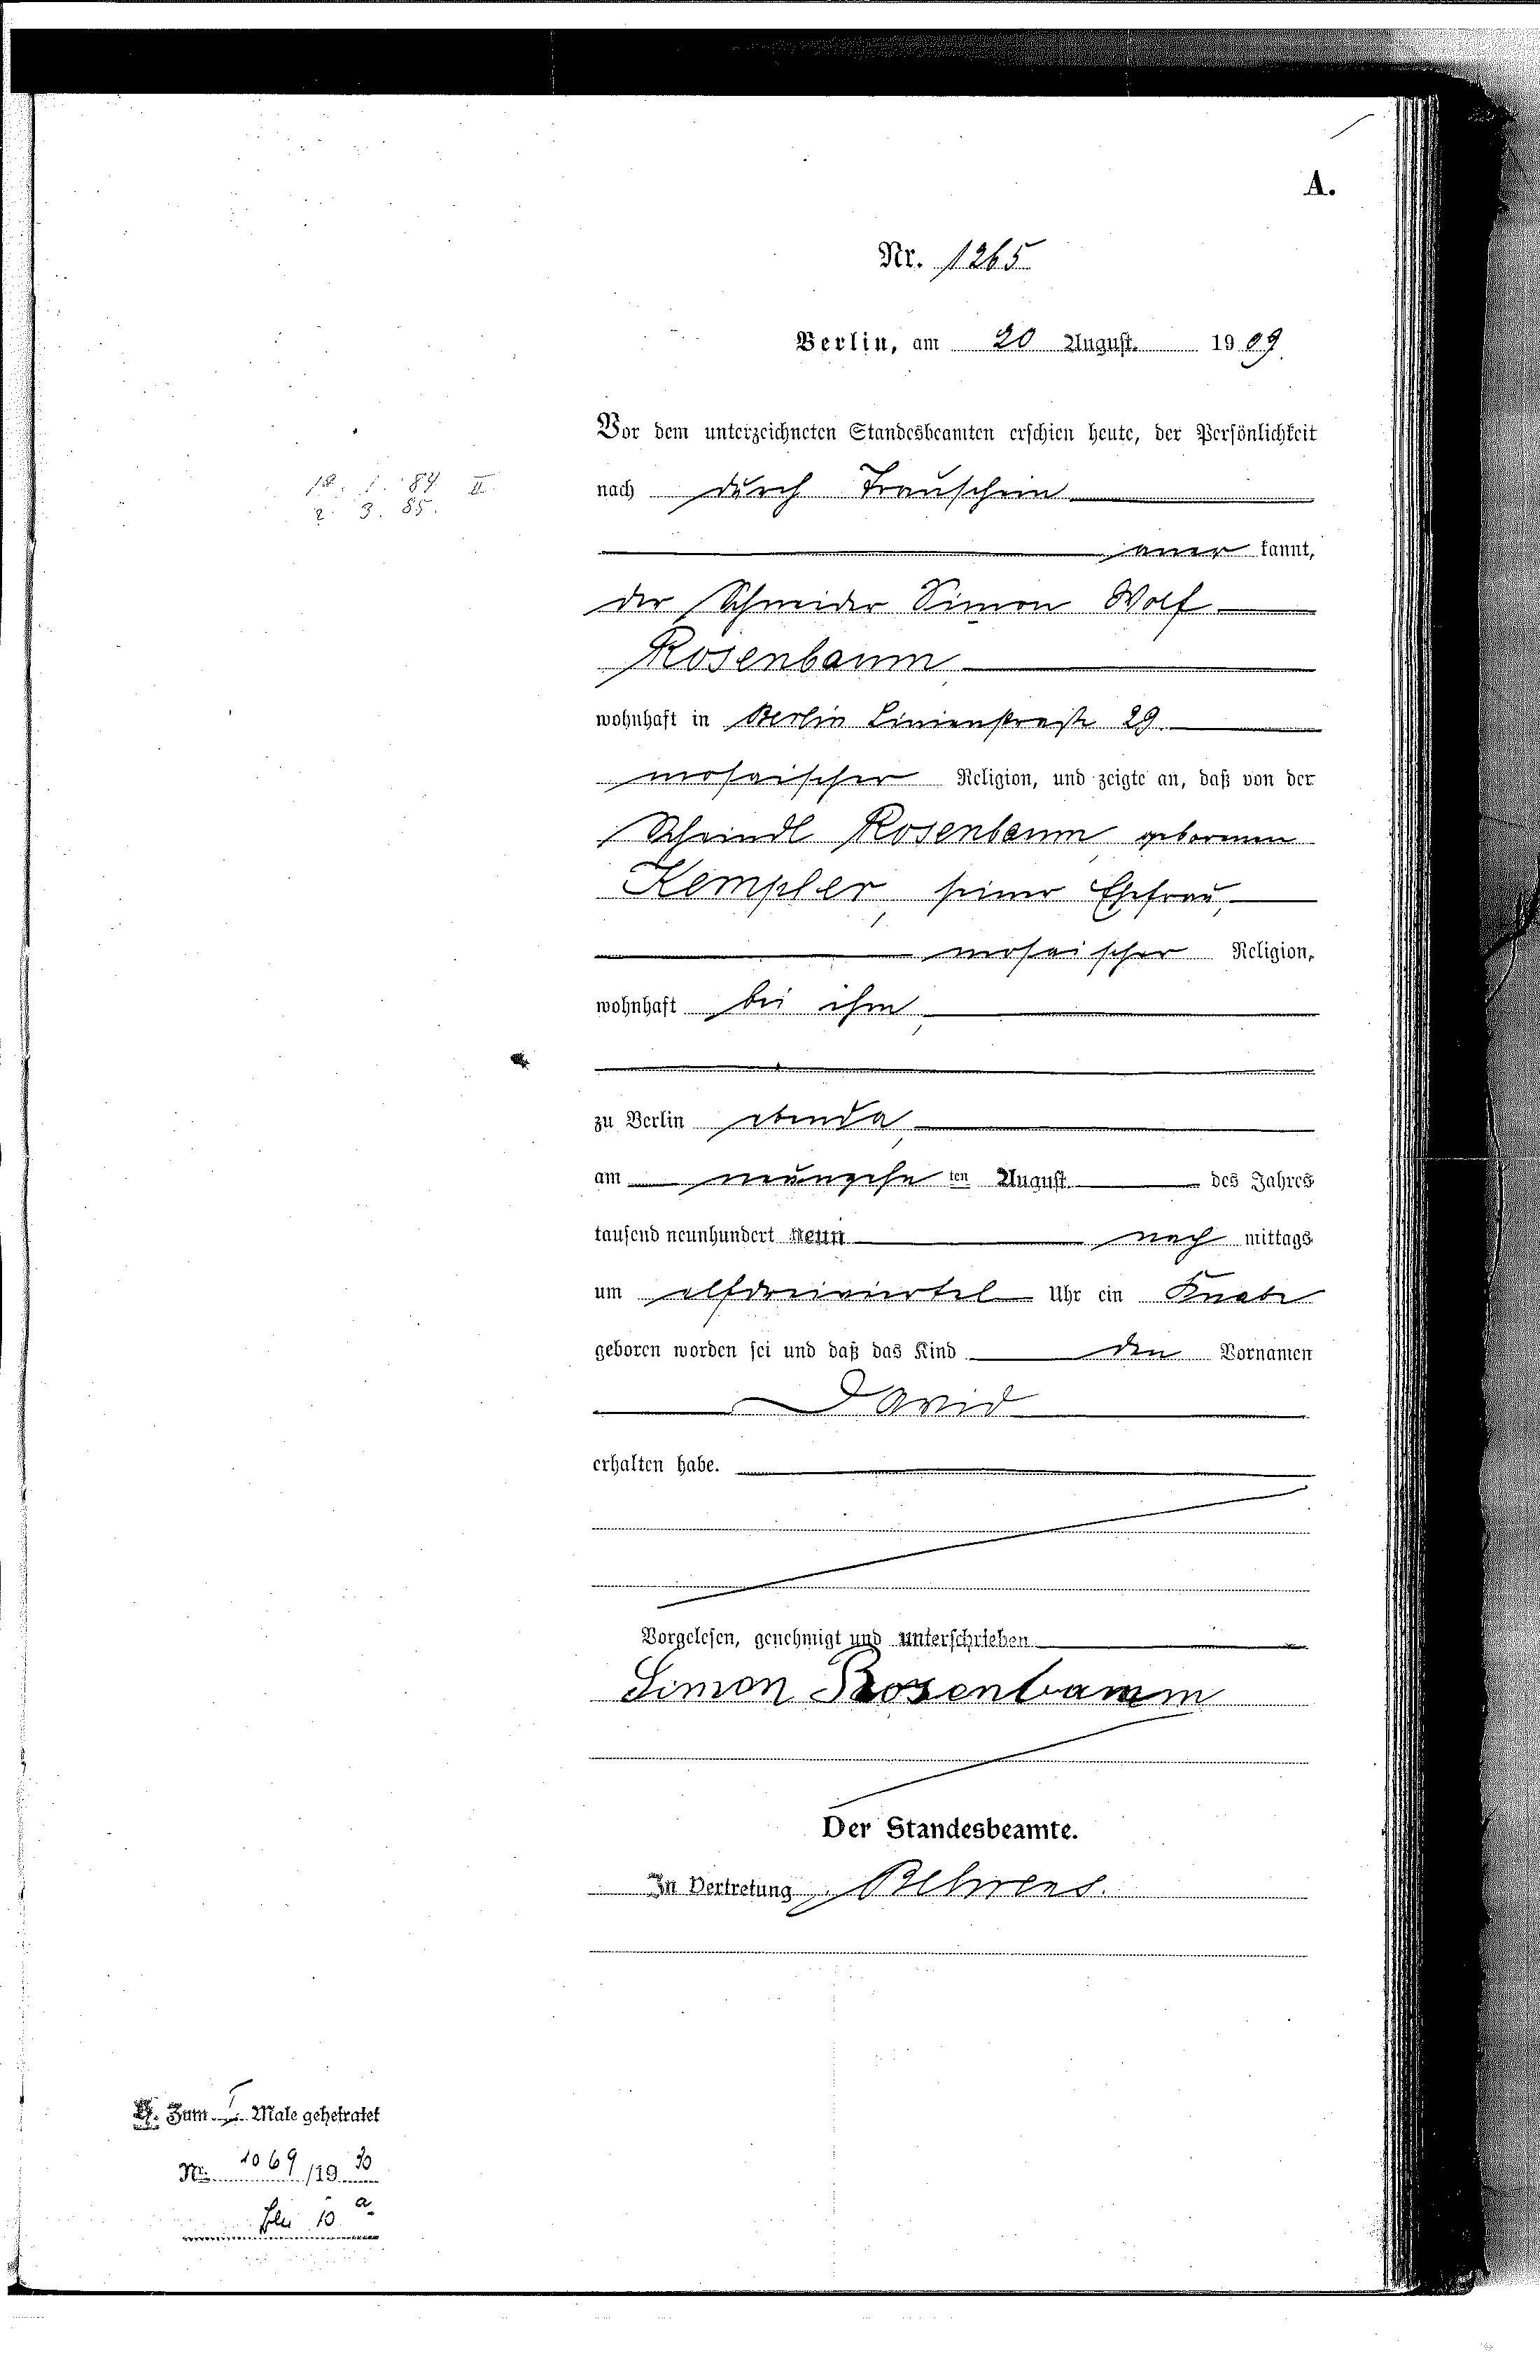 A.
Nr. 1265
Berlin, am 20 August. 1909.
Vor dem unterzeichneten Standesbeamten erschien heute, der Persönlichkeit
nach durch Trauschein
aner kannt,
der Schneider Simon Wolf
Rosenbaum
wohnhaft in Berlin Linienstraße 29
mosaischer Religion, und zeigte an, daß von der
Scheindl Rosenbaum geborenen
Kempler, seiner Ehefrau,
mosaischer Religion,
wohnhaft bei ihm,
zu Berlin ebenda,
am neunzehn ten August des Jahres
tausend neunhundert neun nach mittags
um elfdreiviertel Uhr ein Knabe
geboren worden sei und daß das Kind den Vornamen
David
erhalten habe.
Vorgelesen, genehmigt und unterschrieben
Simon Rosenbaum
Der Standesbeamte.
In Vertretung Behrens.
18. 1. 84 II.
2. 3. 85.
Zum I. Male geheiratet
Nr. 1069 /19 30
Bln 10 a